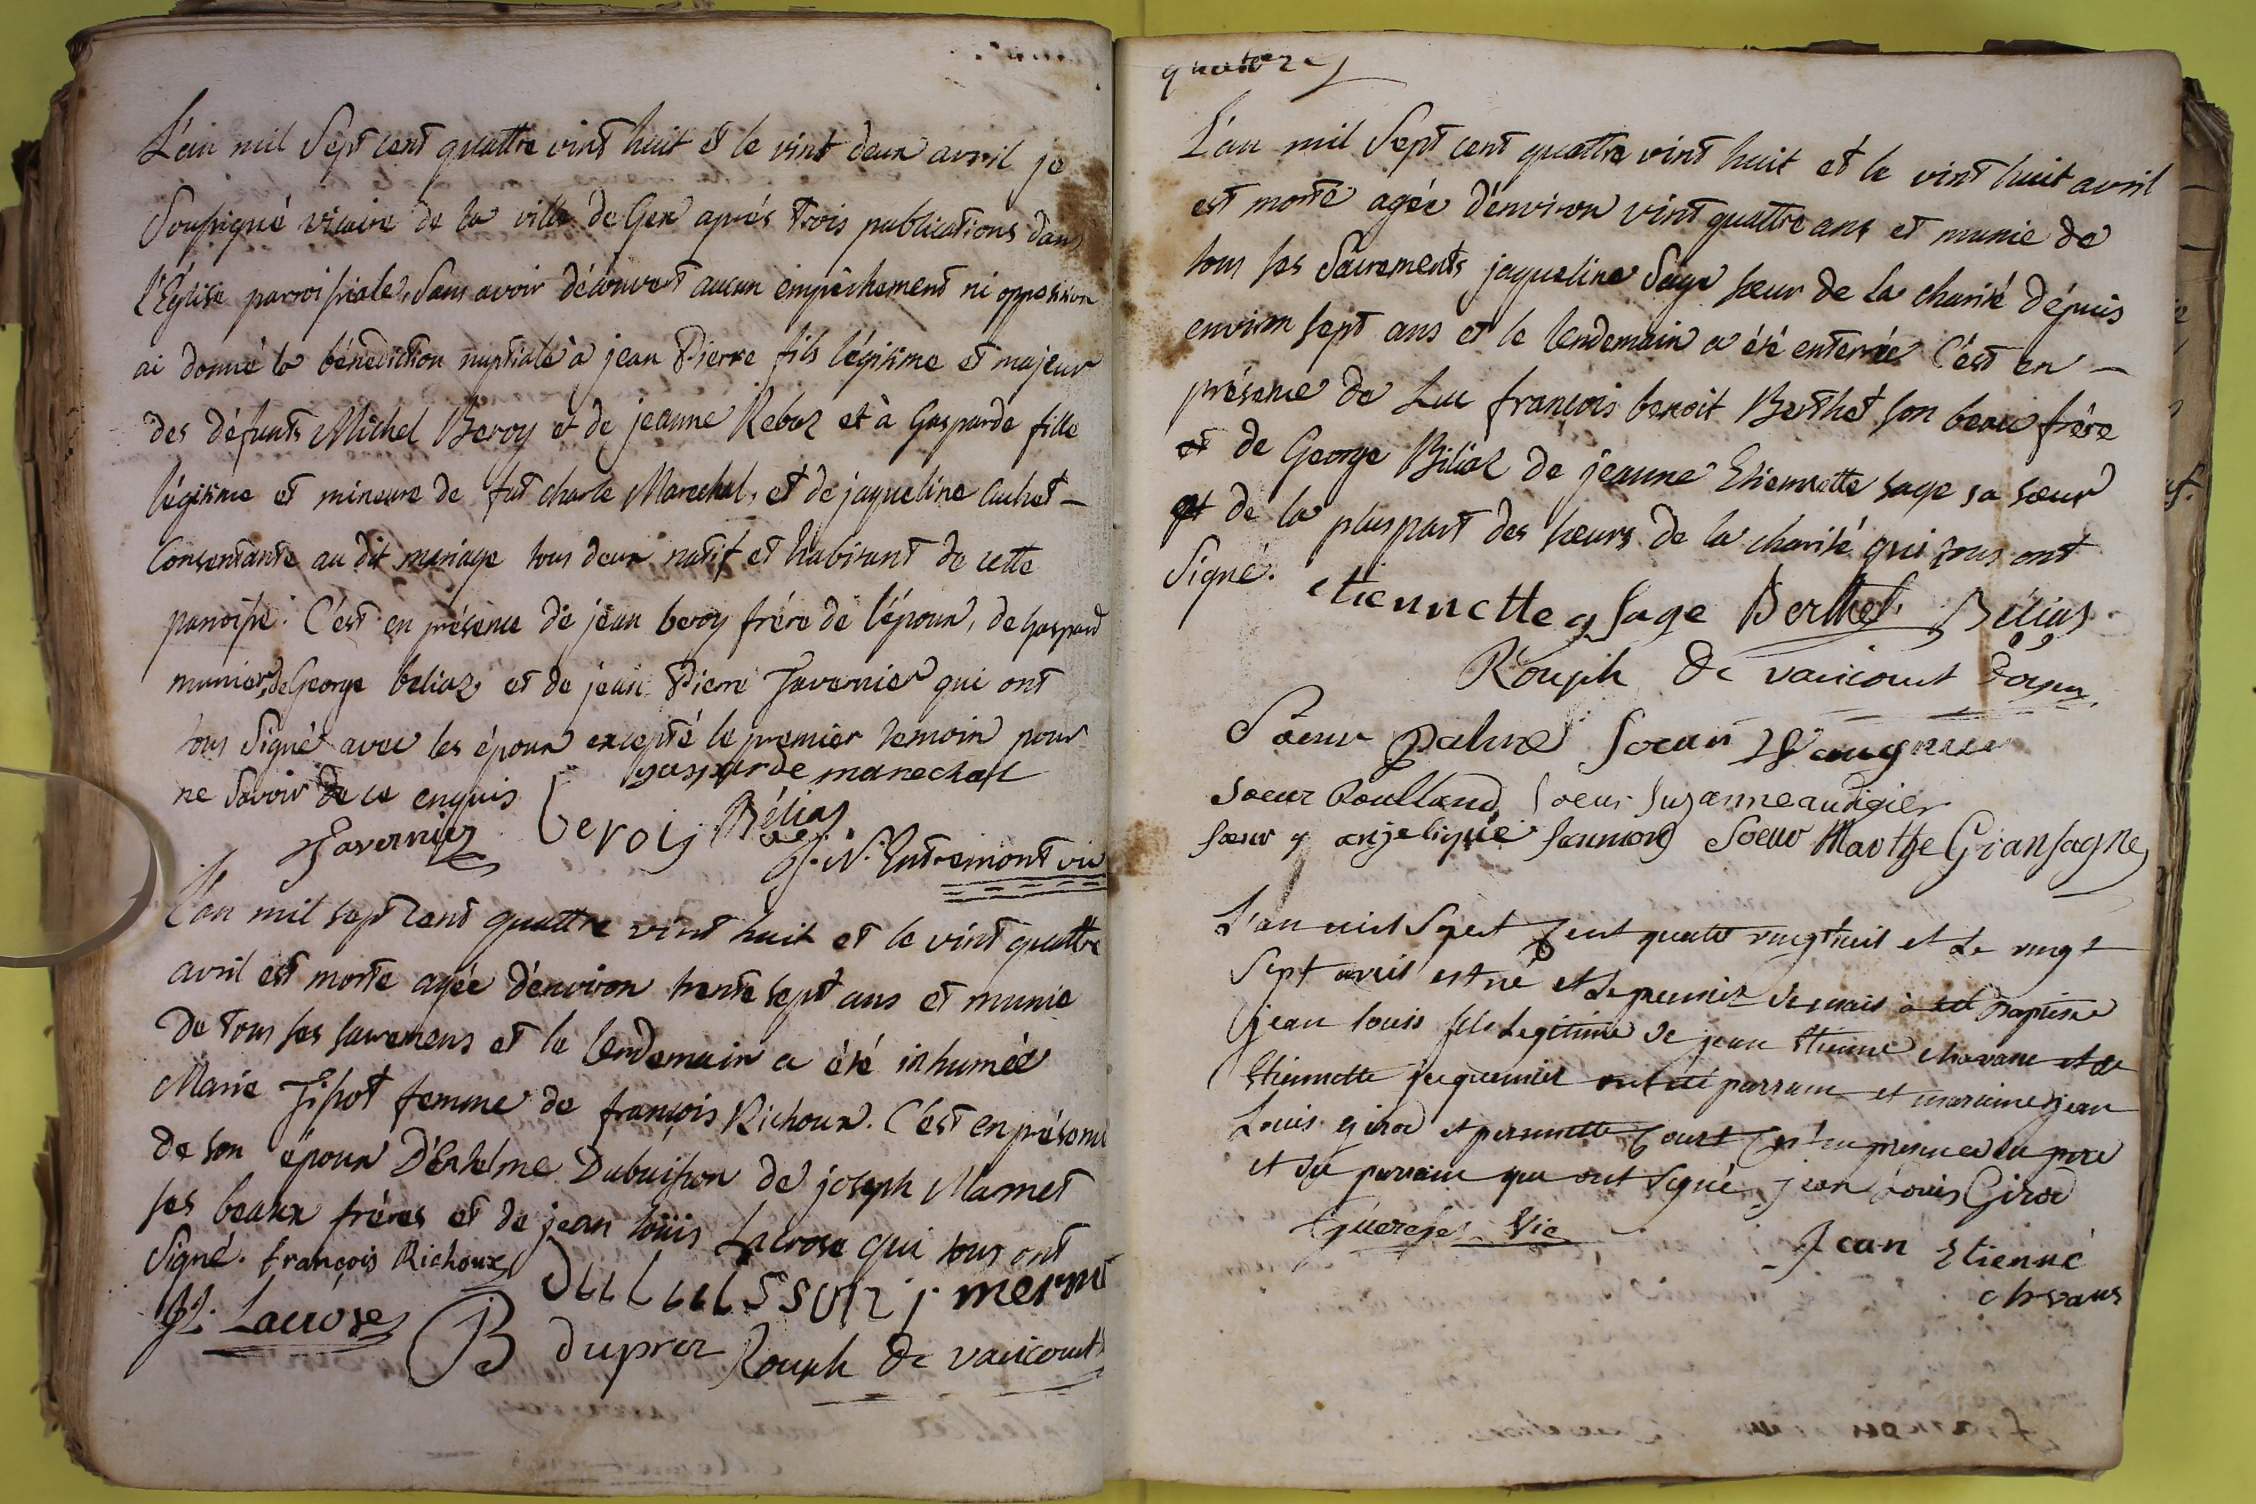 L'an mil Sept cent quattre vint huit et le vint deux avril je
Soussigné vicaire de la ville de Gex aprés trois publications dans
l'Eglise parroissiale, Sans avoir découvert aucun empêchement ni opposition
ai donné la bénédiction nuptiale à jean Pierre fils légitime et majeur
des défunts Michel Beroy et de jeanne Reboz et à Gasparde fille
légitime et mineure de fut charle Marechal, et de jaqueline Cuchet -
Consentante au dit mariage tous deux natif et habitant de cette
parroisse. C'est en présence de jean beroy frére de l'époux, de gaspard
munier, de George beliaz, et de jean Pierre Tavernier qui ont
tous Signé avec les époux excepté le premier temoin pour
ne Savoir de ce enquis
gasparde marechal
Tavernier beroiy Bélias
J. N. Entremont vic
L'an mil sept cent quattre vint huit et le vint quattre
avril est morte agée d'environ trente sept ans et munie
de tous ses sacremens et le lendemain a été inhumée
Marie Tissot femme de françois Richoux. C'est en présence
de son époux D'Entelme Dubuisson de joseph Mamet
ses beaux fréres et de jean loüis Lacrose qui tous ont
Signé. françois Richoux
j. mermet
JL. Lacrose B duprez Rouph de varicourt
quatorze
L'an mil Sept cent quattre vint huit et le vint huit avril
est morte agée d'environ vint quattre ans et munie de
tous ses Sacrements jaqueline Sage sœur de la charité dépuis
environ sept ans et le lendemain a été enterrée C'est en -
présence de Luc françois benoit Berthet son beau frére
et de George Biliaz de jeanne Etiennette sage sa sœur
et de la pluspart des sœurs de la charité qui tous ont
Signé.
etiennette Sage Berthet Bélias
Rouph de varicourt doyen
Sœur Palue Sœur
Soeur Roulland Soeur Suzanne audigier
sœur angelique saumon Soeur Marthe Gransagne
L'an mil Sept Cent quatre vingt huit et le vingt
Sept avril est né et le premier de mais à été Baptisé
jean louis fils Legitime de jean Etienne chavane et de
Etiennette jacquemier ont été parrain et maraine jean
Louis girod et pernette Court C'est en presence du pere
et du parrain qui ont Signé jean Louis Girod
Vic
Jean Etienne